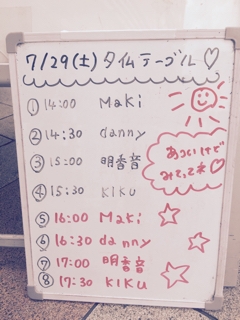 7/29(土) タイムテーブル♡
① 14:00 Maki
② 14:30 danny
③ 15:00 明香音
④ 15:30 KIKU
あついけど
みてってネ♡
⑤ 16:00 Maki
⑥ 16:30 danny
⑦ 17:00 明香音
⑧ 17:30 KIKU